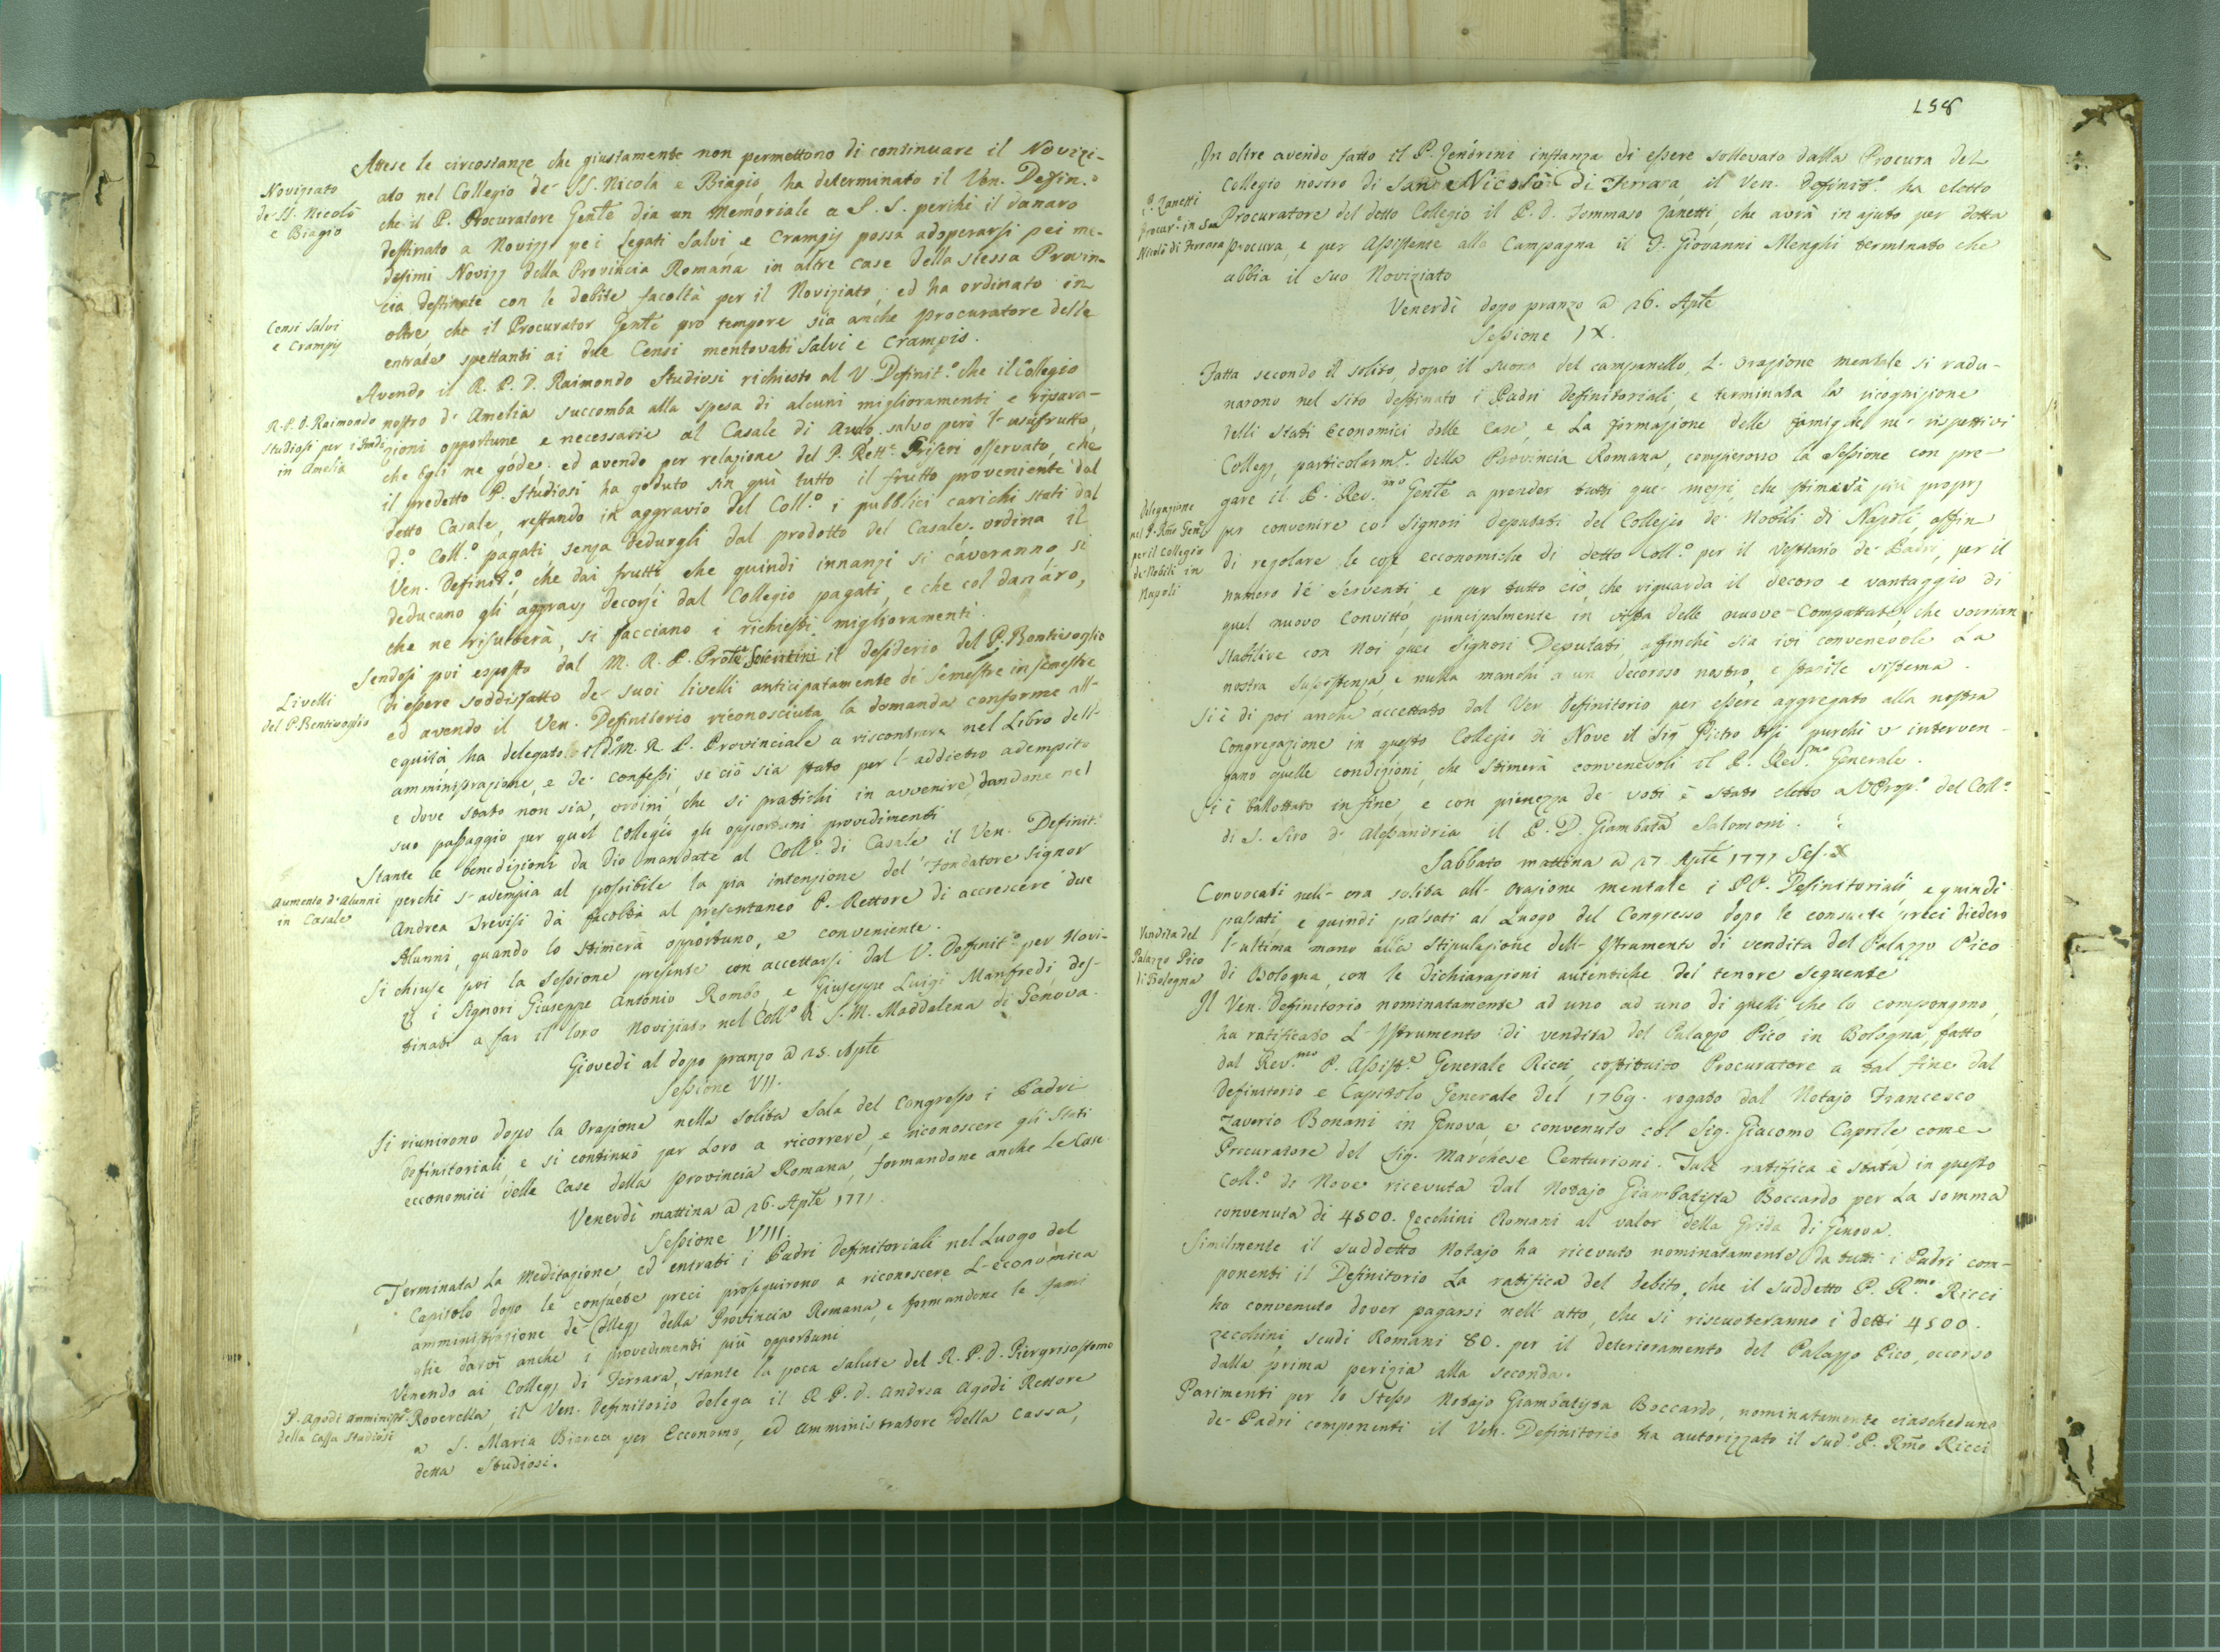 Attese le circostanze che giustamente non permettono di continuare il Novizi-
Noviziato
de' SS. Niccolò
e Biagio
ato nel Collegio de' SS. Nicola e Biagio, ha determinato il Ven. Defin.º
che il P. Procuratore Gen͠le dia un Memoriale a S. S. perchè il danaro
destinato a Novizj pei Legati Salvi, e Crampis possa adoperarsi pei me-
desimi Novizj della Provincia Romana in altre case della stessa Provin-
cia destinate con le debite facoltà per il Noviziato; ed ha ordinato in
Censi Salvi
e Crampis
oltre, che il Procurator Gen͠le pro tempore sia anche procuratore delle
entrate spettanti ai due Censi mentovati Salvi e Crampis.
Avendo il R. P. D. Raimondo Studiosi richiesto al V Definit.º che il Collegio
R. P. D. Raimondo
Studiosi per i fondi
in Amelia
nostro d' Amelia succomba alla spesa di alcuni miglioramenti e ripara-
zioni opportune e necessarie al Casale di salvo però l' usufrutto,
che Egli ne gode: ed avendo per relazione del P. Rett.e Friseri osservato, che
il predetto P. Studiosi ha goduto sin qui tutto il frutto proveniente dal
detto Casale, restando in aggravio del Coll.º i pubblici carichi stati dal
d.º Coll.º pagati, senza dedurgli dal prodotto del Casale: ordina il
Ven. Definit.º che dai frutti che quindi innanzi si caveranno, si
deducano gli aggravj decorsi dal Collegio pagati, e che col danaro,
che ne risulterà, si facciano i richiesti miglioramenti.
Sendosi poi esposto dal M. R. P. Pro͠le Sorentini il desiderio del P. Bentivoglio
Livelli
del P. Bentivoglio
di essere soddisfatto de' suoi livelli anticipatamente di Semestre in semestre
ed avendo il Ven. Definitorio riconosciuta la domanda conforme all'
equità ha delegato il d.º M. R. P. Provinciale a riscontrare nel Libro dell'
amministrazione, e de' confessi, se ciò sia stato per l' addietro adempito
e dove stato non sia, ordini, che si pratichi in avvenire, dandone nel
suo passaggio per quel Collegio gli opportuni provedimenti
Stante le benedizioni da Dio mandate al Coll.º di Casale il Ven. Definit.º
Aumento d' Alunni
in Casale
perchè s' adempia al possibile la pia intenzione del Fondatore Signor
Andrea Trevisi dà facoltà al presentaneo P. Rettore di accrescere due
Alunni, quando lo stimerà opportuno, e conveniente.
Si chiuse poi la Sessione presente con accettarsi dal V. Definit.º per Novi-
zj i Signori Giuseppe Antonio Rombo, e Giuseppe Luigi Manfredi, des-
tinati a far il loro Noviziato nel Coll.º di S. M. Maddalena di Genova.
Giovedì al dopo pranzo a 25. Ap͠le
Sessione VII.
Si riunirono dopo la Orazione nella solita Sala del Congresso i Padri
Definitoriali, e si continuò par Loro a ricorrere, e riconoscere gli Stati
ecconomici delle Case della Provincia Romana, formandone anche Le Case
Venerdì mattina a 26. Ap͠le 1771.
Sessione VIII.
Terminata La Meditazione, ed entrati i Padri Definitoriali nel Luogo del
Capitolo dopo le consuete preci proseguirono a riconoscere L' economica
amministrazione de' Collegj della Provincia Romana, e formandone le fami
glie darvi anche i provedimenti più opportuni
Venendo ai Collegj di Ferrara, stante la poca salute del R. P. D. Piergrisostomo
P. Agodi amminist.e
della Cassa Studiosi
Roverella, il Ven. Definitorio delega il R P. D. Andrea Agodi Rettore
a S. Maria Bianca per Ecconomo, ed Amministratore della Cassa,
detta Studiosi.
158
In oltre avendo fatto il P. Zendrini instanza di essere sollevato dalla Procura del
Collegio nostro di San Nicolò di Ferrara, il Ven. Definit.º ha eletto
P. Zanetti
Procur.e in San
Nicolò di Ferrara
Procuratore del detto Collegio il P. D. Tommaso Zanetti, che avrà in ajuto per detta
Procura, e per Assistente alla Campagna il F. Giovanni Menghi terminato che
abbia il suo Noviziato
Venerdì dopo pranzo a 26. Ap͠le
Sessione IX.
Fatta secondo il solito, dopo il suono del campanello, L' orazione mentale si radu-
narono nel sito destinato i Padri Definitoriali, e terminata la ricognizione
delli Stati Economici delle Case, e La formazione delle famiglie ne' rispettivi
Collegj, particolarm.e della Provincia Romana, compierono la Sessione con pre-
Delegazione
nel P. Rm͠o Gen͠le
per il Collegio
de' Nobili in
Napoli
gare il P. Rev.mo Gen͠le a prender tutti que' mezzi, che stimerà più proprj
per convenire co' Signori Deputati del Collegio de' Nobili di Napoli, affin
di regolare le cose ecconomiche di detto Coll.º per il vestiario de' Padri, per il
numero de' Serventi, e per tutto ciò, che riguarda il decoro e vantaggio di
quel nuovo Convitto, principalmente in vista delle nuove che vorrian
stabilire con Noi quei Signori Deputati, affinchè sia ivi convenevole La
nostra sussistenza, e nulla manchi a un decoroso nostro, e stabile sistema.
Si è di poi anche accettato dal Ven Definitorio per essere aggregato alla nostra
Congregazione in questo Collegio di Nove il Sig. Pietro Ossi purchè v' interven-
gano quelle condizioni, che stimerà convenevoli il P. Rev.mo Generale.
Si è ballottato in fine, e con pienezza de' voti è stato eletto a V Prep.º del Coll.º
di S. Siro d' Alessandria il P. D. Giambatta Salomoni.
Sabbato mattina a 27. Ap͠le 1771 Ses. X
Convocati nell' ora solita all' Orazione mentale i PP. Definitoriali, e quindi
passati, e quindi passati al Luogo del Congresso dopo le consuete preci diedero
Vendita del
Palazzo Pico
di Bologna
l' ultima mano alla stipulazione dell' Istrumento di vendita del Palazzo Pico
di Bologna, con le dichiarazioni autentiche del tenore seguente
Il Ven. Definitorio nominatamente ad uno ad uno di quelli, che lo compongono,
ha ratificato L' Istrumento di vendita del Palazzo Pico in Bologna, fatto
dal Rev.mo P. Assist.e Generale Ricci, costituito Procuratore a tal fine dal
Definitorio e Capitolo Generale del 1769. rogato dal Notajo Francesco
Zaverio Bonani in Genova, e convenuto col Sig. Giacomo Caprile come
Procuratore del Sig. Marchese Centurioni. Tale ratifica è stata in questo
Coll.º di Nove ricevuta dal Notajo Giambatista Boccardo per La somma
convenuta di 4500. Zecchini Romani al valor della Grida di Genova.
Similmente il suddetto Notajo ha ricevuto nominatamente da tutti i Padri com-
ponenti il Definitorio La ratifica del debito, che il suddetto P. R.mo Ricci
ha convenuto dover pagarsi nell' atto, che si riscuoteranno i detti 4500.
zecchini, scudi Romani 80. per il deterioramento del Palazzo Pico, occorso
dalla prima perizia alla seconda.
Parimenti per lo stesso Notajo Giambatista Boccardo, nominatamente ciascheduno
de' Padri componenti il Ven. Definitorio ha autorizzato il sud.º P. Rm͠o Ricci